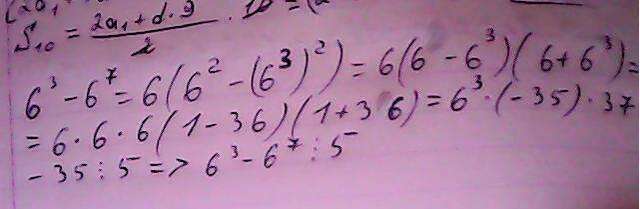 S₁₀ = (2a₁ + d · 9)/2 · 10 = (2
6³ - 6⁷ = 6(6² - (6³)²) = 6(6 - 6³)(6 + 6³) =
= 6 · 6 · 6(1 - 36)(1 + 36) = 6³ · (-35) · 37
- 35 ⋮ 5 => 6³ - 6⁷ ⋮ 5